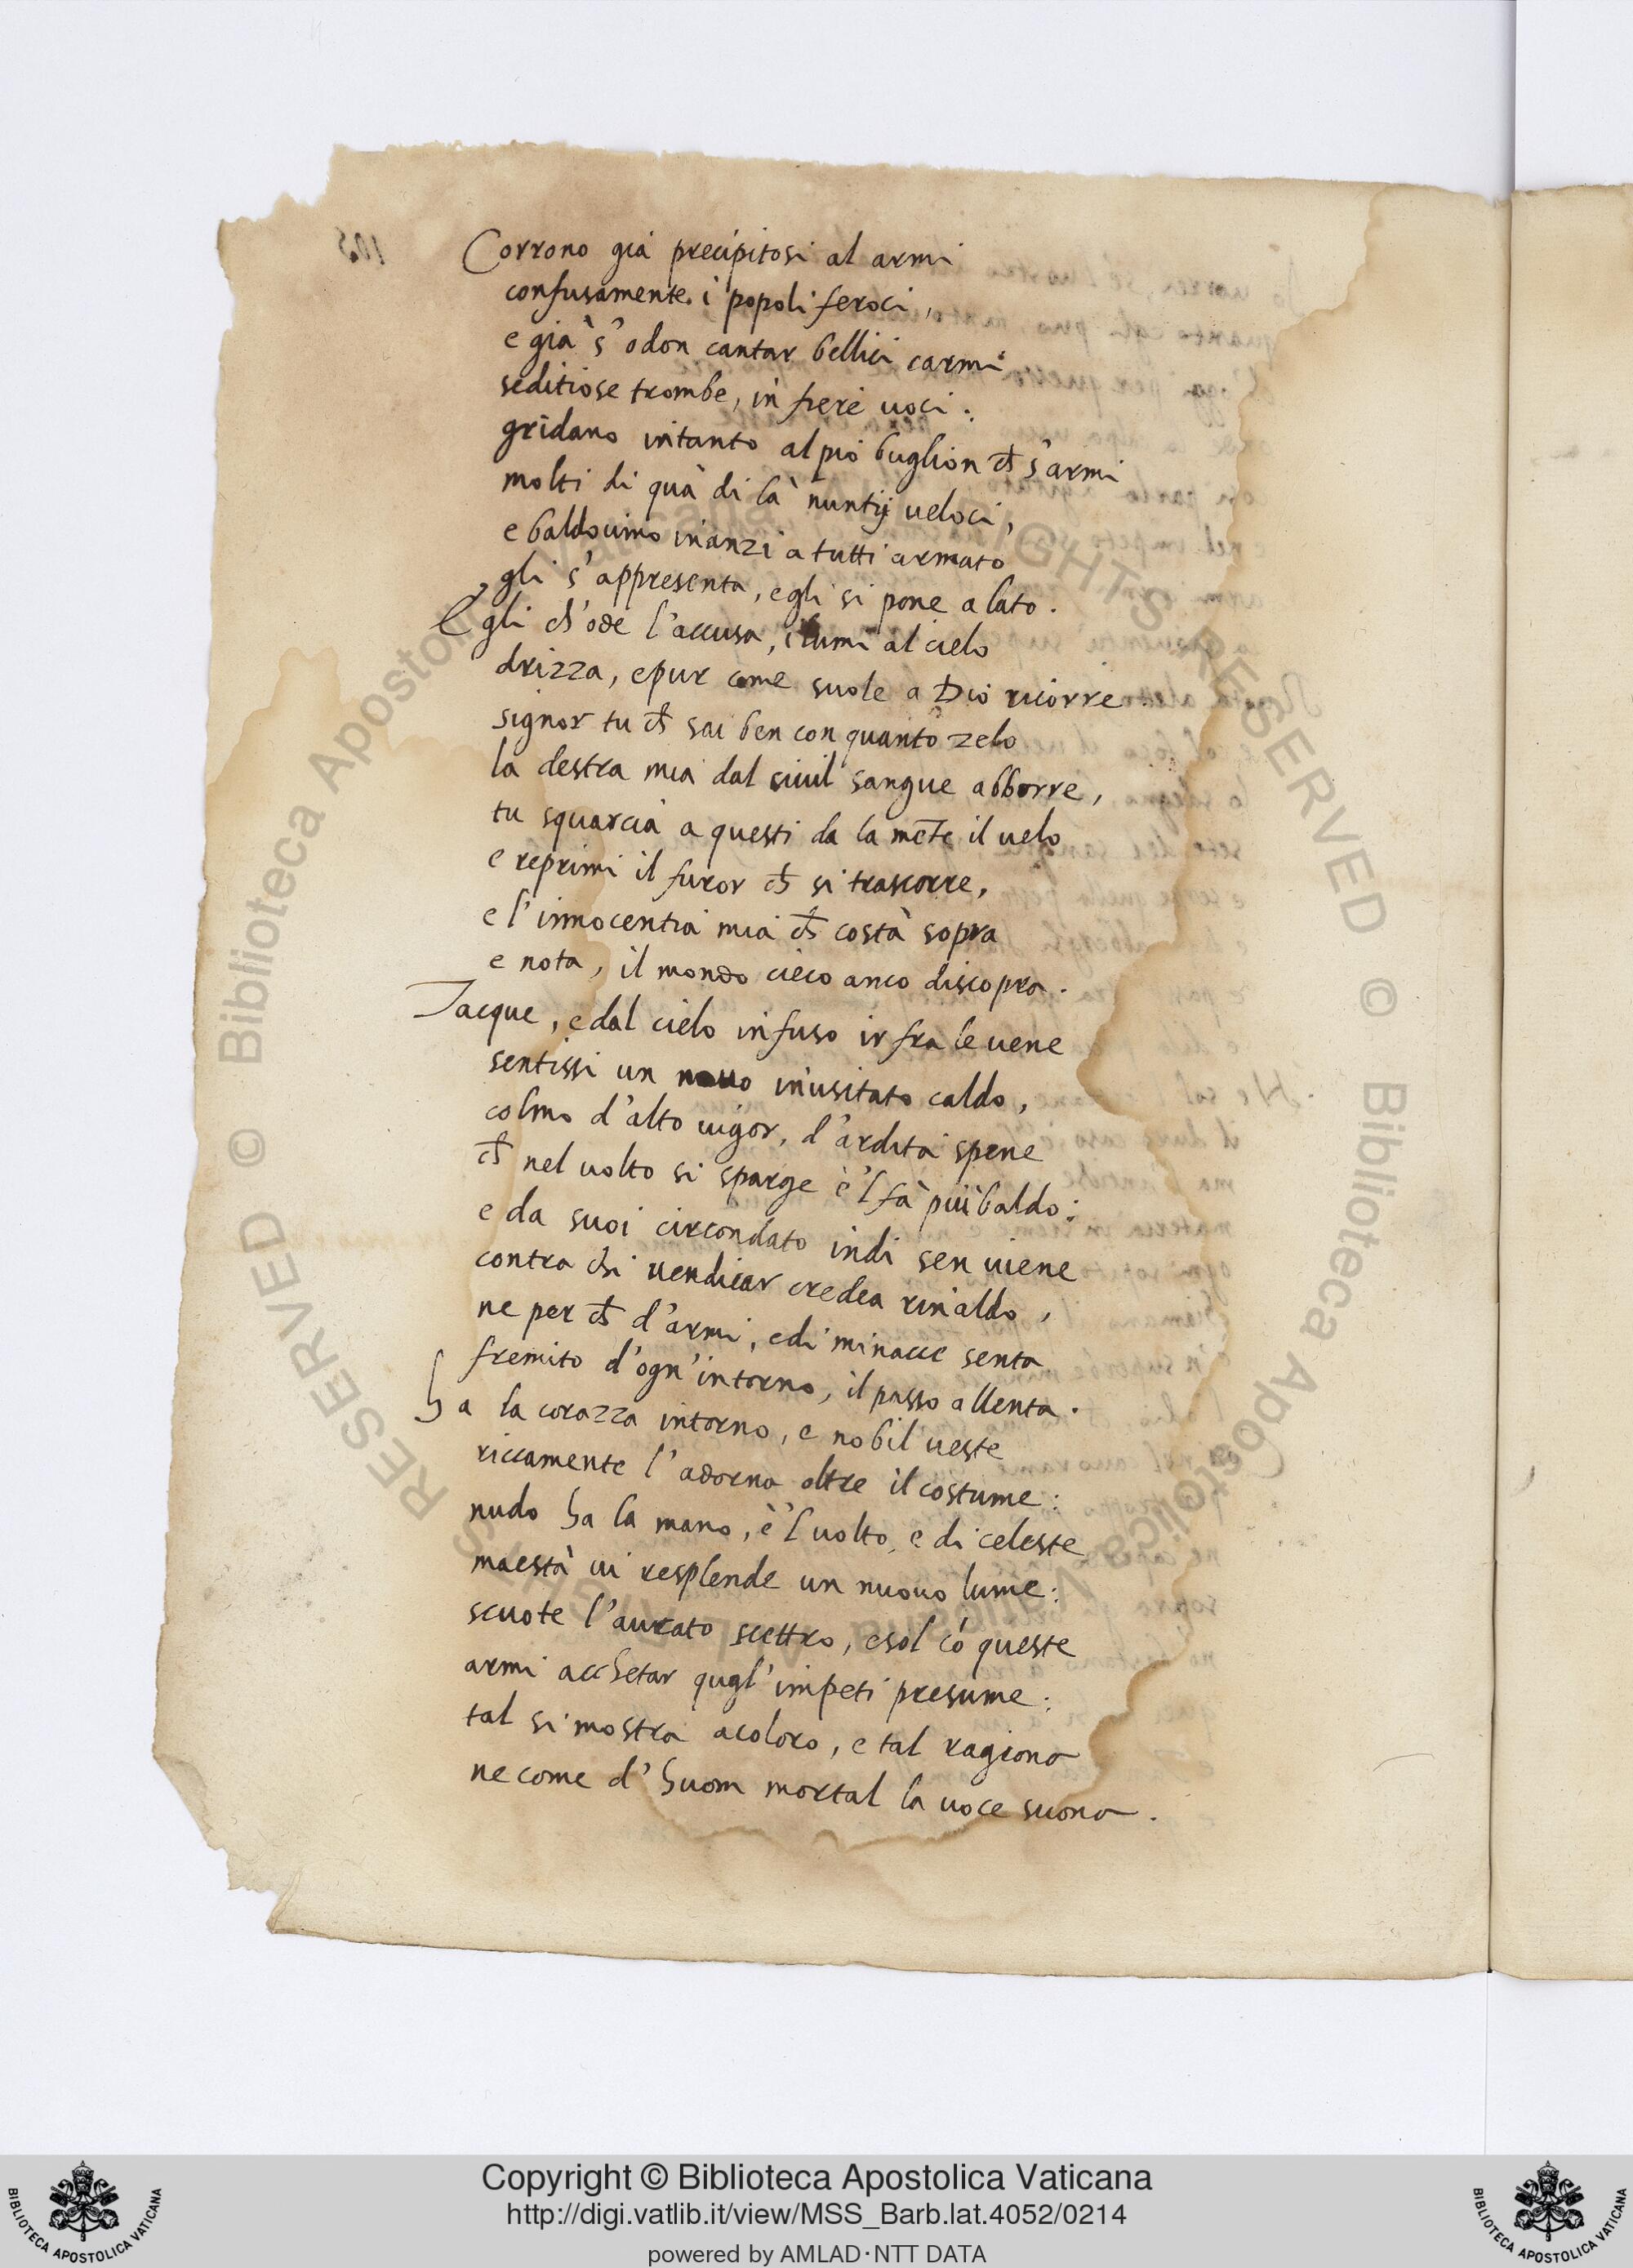 Corrono già precipitosi al armi
confusamente i popoli feroci,
e già s'odon cantar bellici carmi
seditiose trombe, in fiere uoci:
gridano intanto al pio buglion ch̄ s'armi
molti di quà di là nuntij ueloci,
e baldouino inanzi a tutti armato
gli s'appresenta, egli si pone a lato.
Egli ch'ode l'accusa, i lumi al cielo
drizza, e pur come suole a Dio ricorre
signor tu ch̄ sai ben con quanto zelo
la destra mia dal ciuil sangue abborre,
tu squarcia a questi da la mēte il uelo
e reprimi il furor ch̄ si trascorre,
e l'innocentia mia ch̄ costà sopra
e nota, il mondo cieco anco discopra.
Tacque, e dal cielo infuso ir fra le uene
sentissi un nouo inusitato caldo,
colmo d'alto uigor, d'ardita spene
ch̄ nel uolto si sparge e'l fà più baldo:
e da suoi circondato indi sen uiene
contra chi uendicar credea rinaldo,
ne per ch̄ d'armi, e di minacce senta
fremito d'ogn'intorno, il passo allenta.
Ha la corazza intorno, e nobil ueste
riccamente l'adorna oltre il costume:
nudo ha la mano, e'l uolto, e di celeste
maestà ui resplende un nuouo lume:
scuote l'aurato scettro, e sol cō queste
armi acchetar qugl'impeti presume:
tal si mostra a coloro, e tal ragiona
ne come d'huom mortal la uoce suona.
RESERVED © Biblioteca Apostolica Vaticana ALL RIGHTS RESERVED © Biblioteca Apostolica Vaticana ALL RIGHTS
Copyright © Biblioteca Apostolica Vaticana
http://digi.vatlib.it/view/MSS_Barb.lat.4052/0214
powered by AMLAD·NTT DATA
BIBLIOTECA APOSTOLICA VATICANA
BIBLIOTECA APOSTOLICA VATICANA